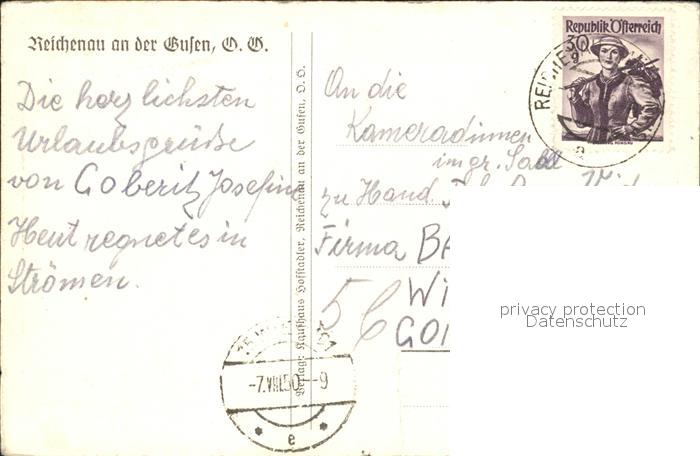 Reichenau an der Gusen, O. Ö.
Die herzlichsten
Urlaubsgrüße
von Goberitz Josefine
Heut regnet es in
Strömen.
Verlag: Kaufhaus Hofstadler, Reichenau an der Gusen, O. Ö.
An die
Kameradinnen
im gr. Saal
zu Hand.
Firma BA
56 WI
GO
Republik Österreich
30 g
REICHE
a
-7.VIII.50--9
* e *
privacy protection
Datenschutz